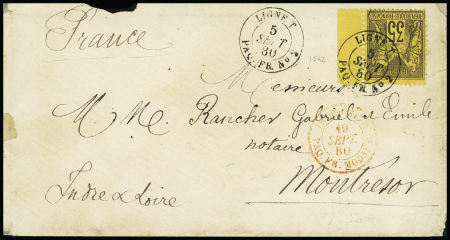 France
LIGNE T
5
SEPT
80
PAQ. FR. No 2
LIGNE T
5
SEPT
80
PAQ. FR. No 2
35
1552
Messieurs
M. M. Rancher Gabriel et Emile
notaire
19
SEPT.
80
Montresor
Indre & Loire